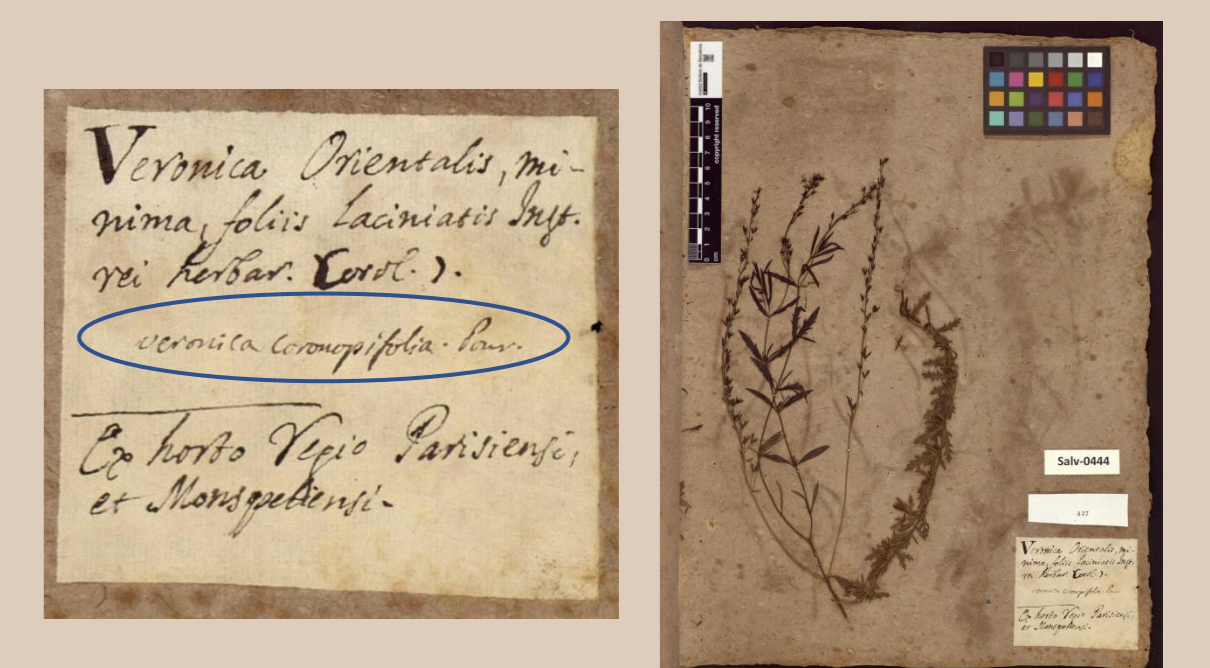 Veronica Orientalis, mi-
nima, foliis Laciniatis Inst.
rei herbar. Corol. 7.
veronica coronopifolia. Pour.
Ex horto Regio Parisiensi,
et Monspeliensi.
copyright reserved
0 1 2 3 4 5 6 7 8 9 10
cm
Salv-0444
427
Veronica Orientalis, mi-
nima, foliis Laciniatis Inst.
rei herbar. Corol. 7.
veronica coronopifolia. Pour.
Ex horto Regio Parisiensi,
et Monspeliensi.